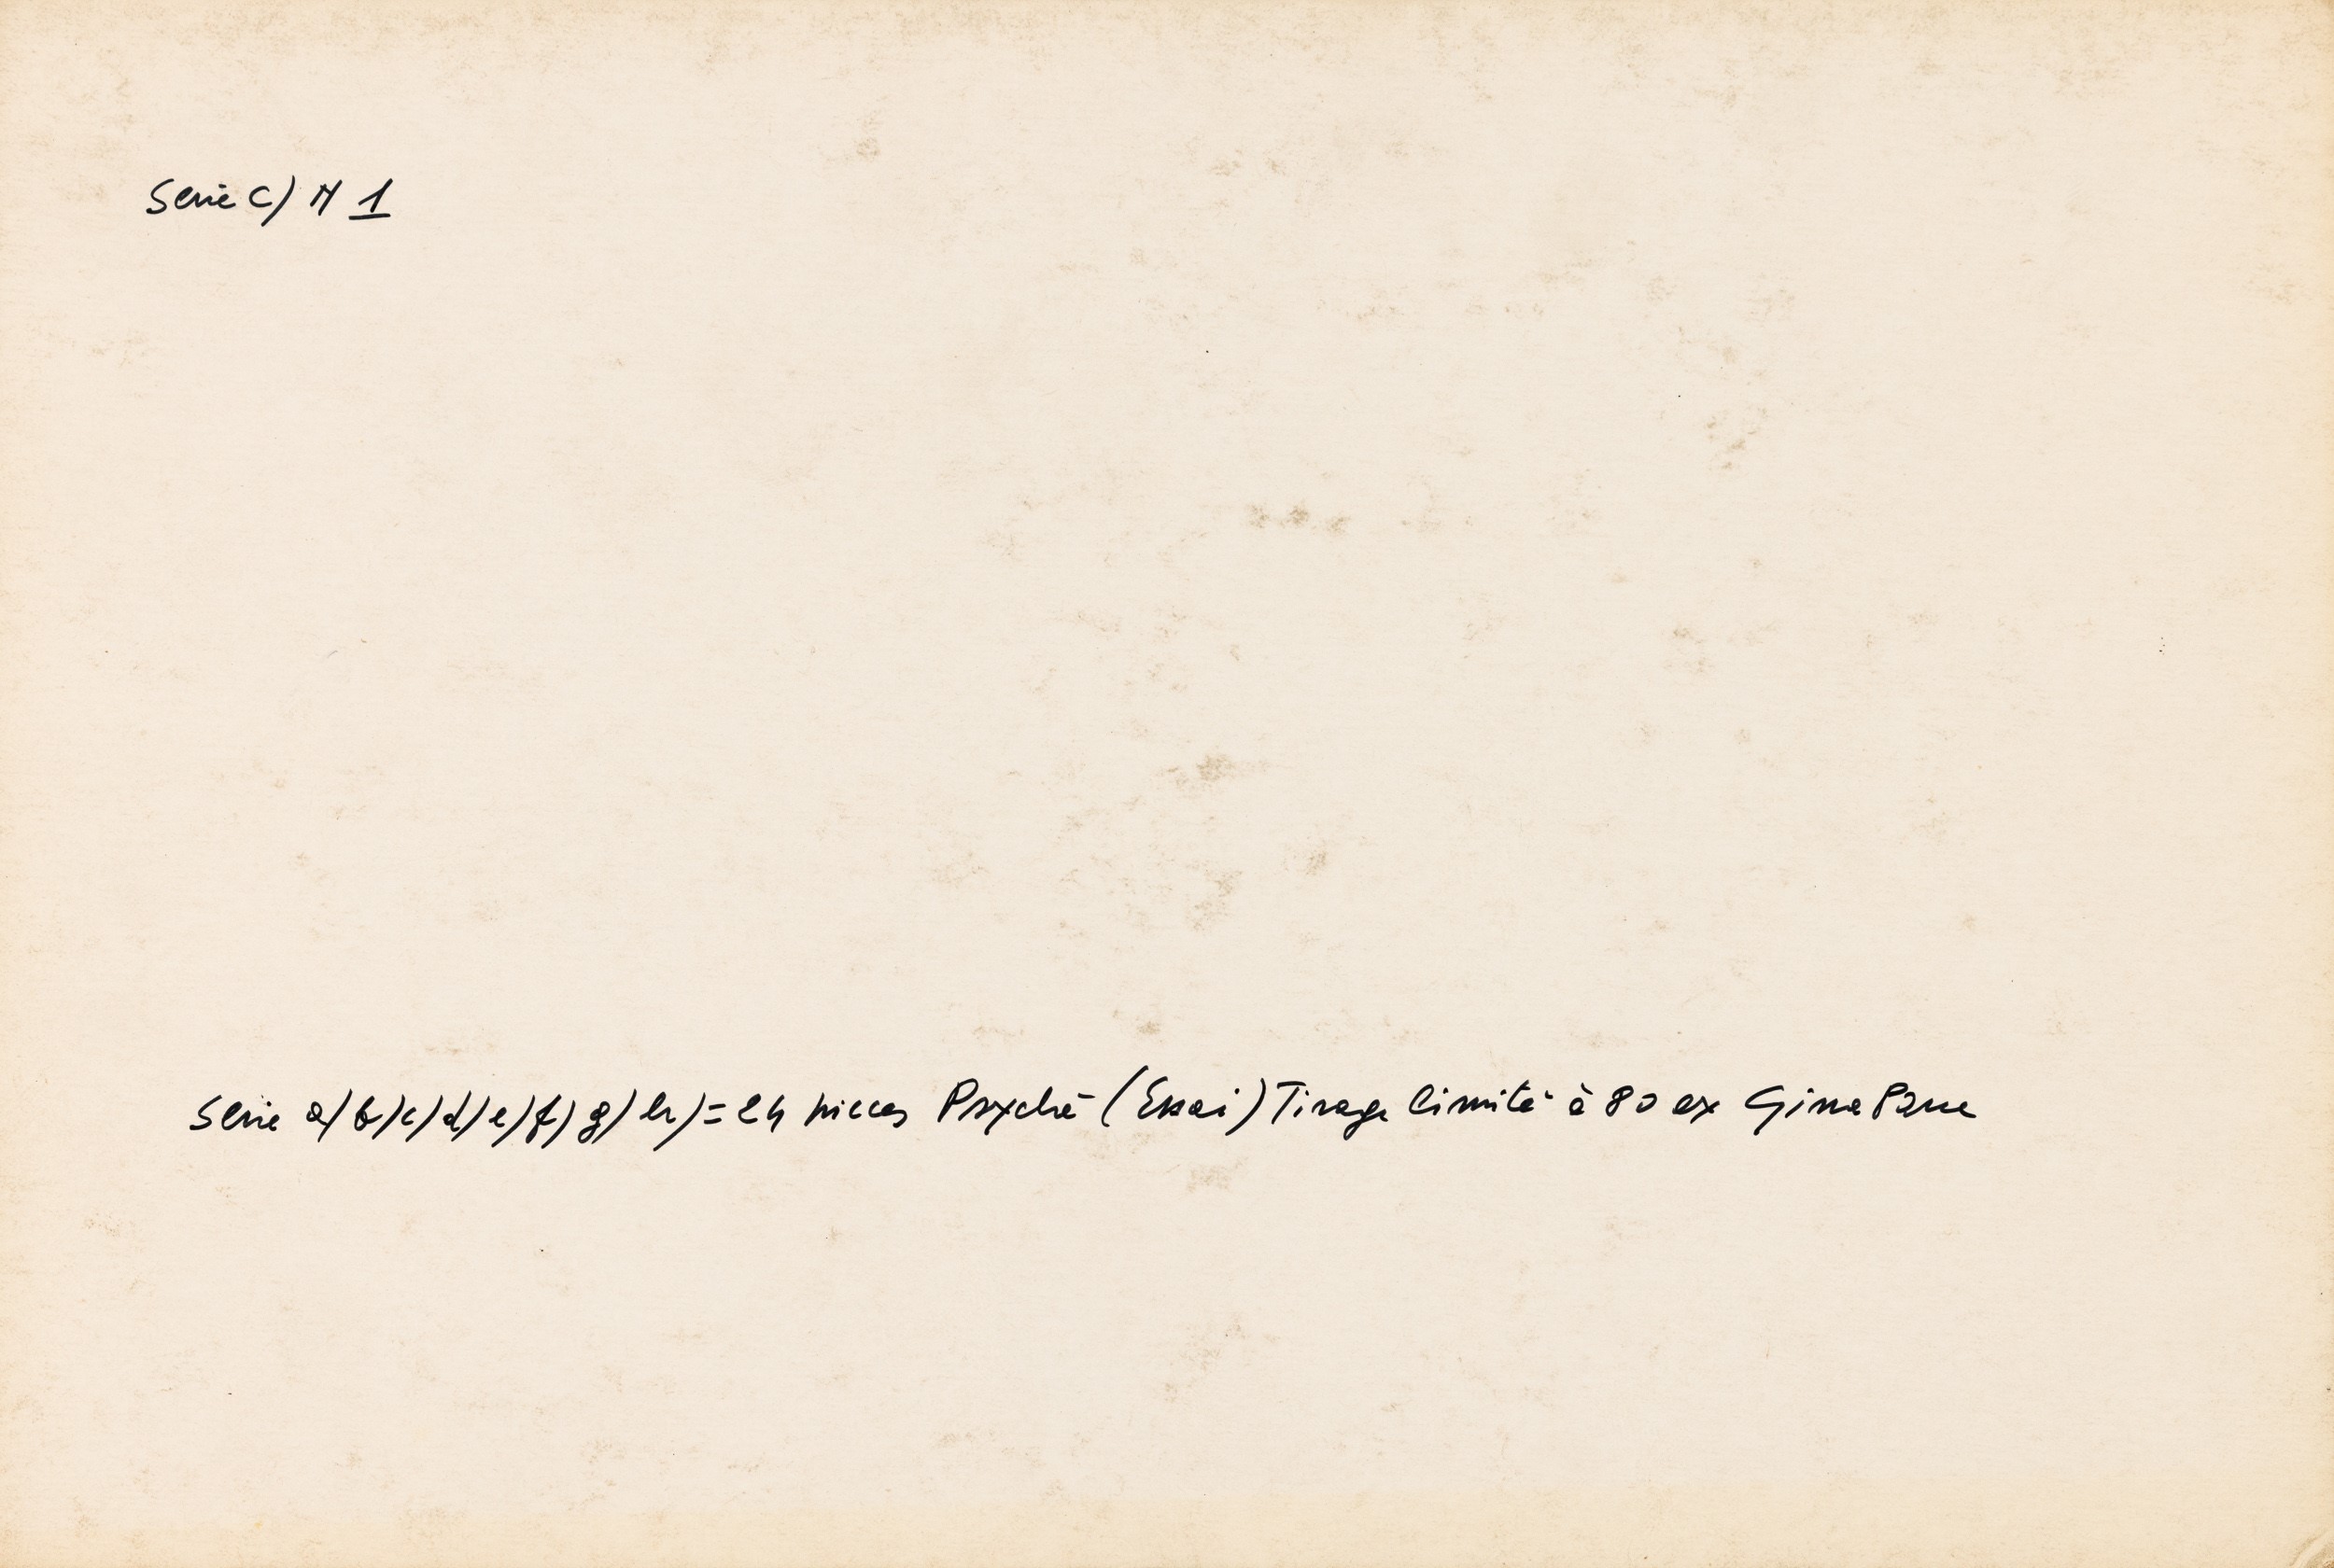 Serie C) N 1
Serie a) b) c) d) e) f) g) h) = 24 pieces Psyché (Essai) Tirage limité à 80 ex Gina Pane